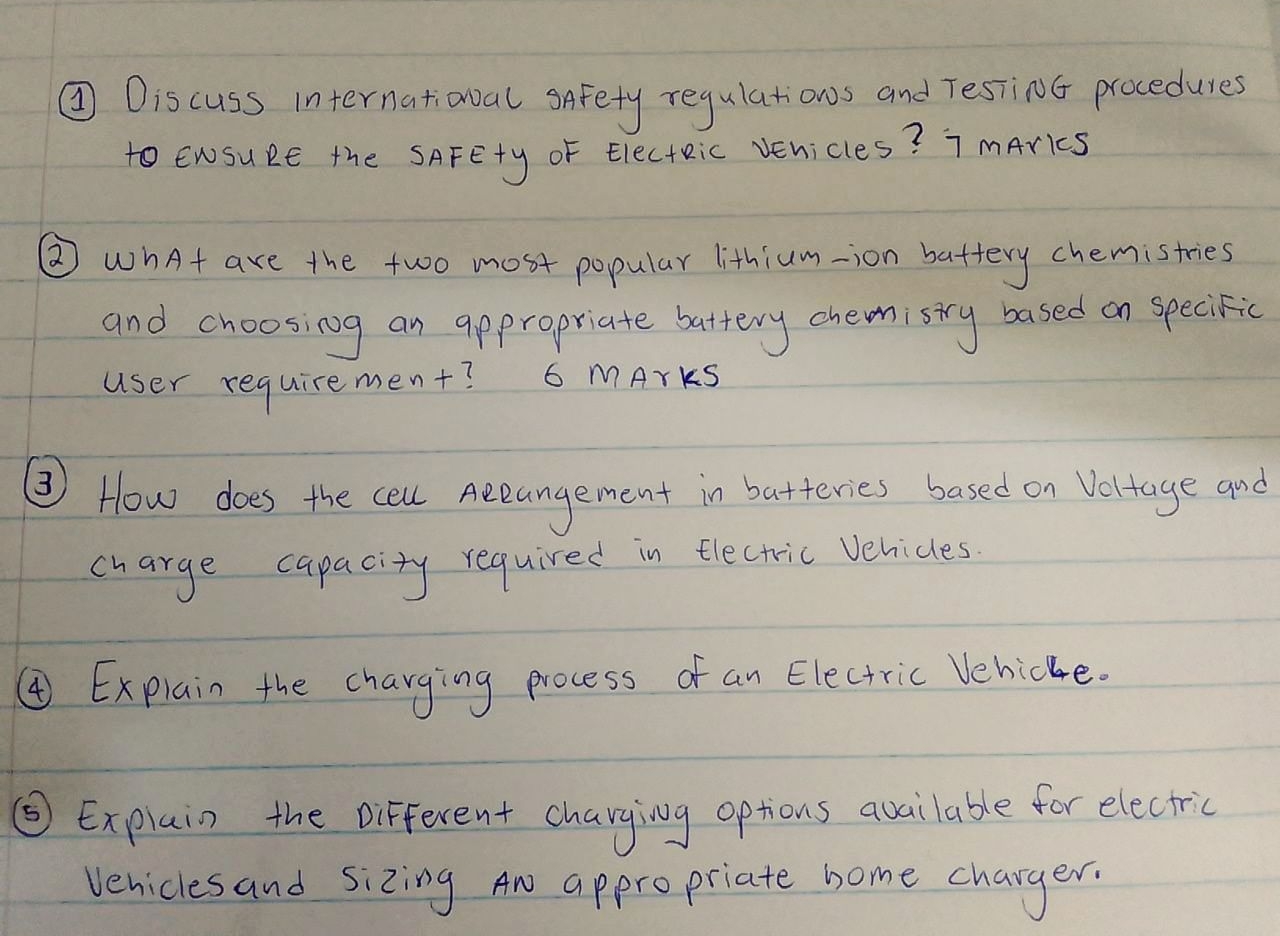 ① Discuss international SAFety regulations and TESTING procedures
to ENSURE the SAFEty of Electric Vehicles? 7 MARKS
② What are the two most popular lithium-ion battery chemistries
and choosing an appropriate battery chemistry based on specific
user requirement? 6 MARKS
③ How does the cell ARRangement in batteries based on Voltage and
charge capacity required in Electric Vehicles.
④ Explain the charging process of an Electric Vehicle.
⑤ Explain the Different charging options available for electric
Vehicles and Sizing AN appropriate home charger.